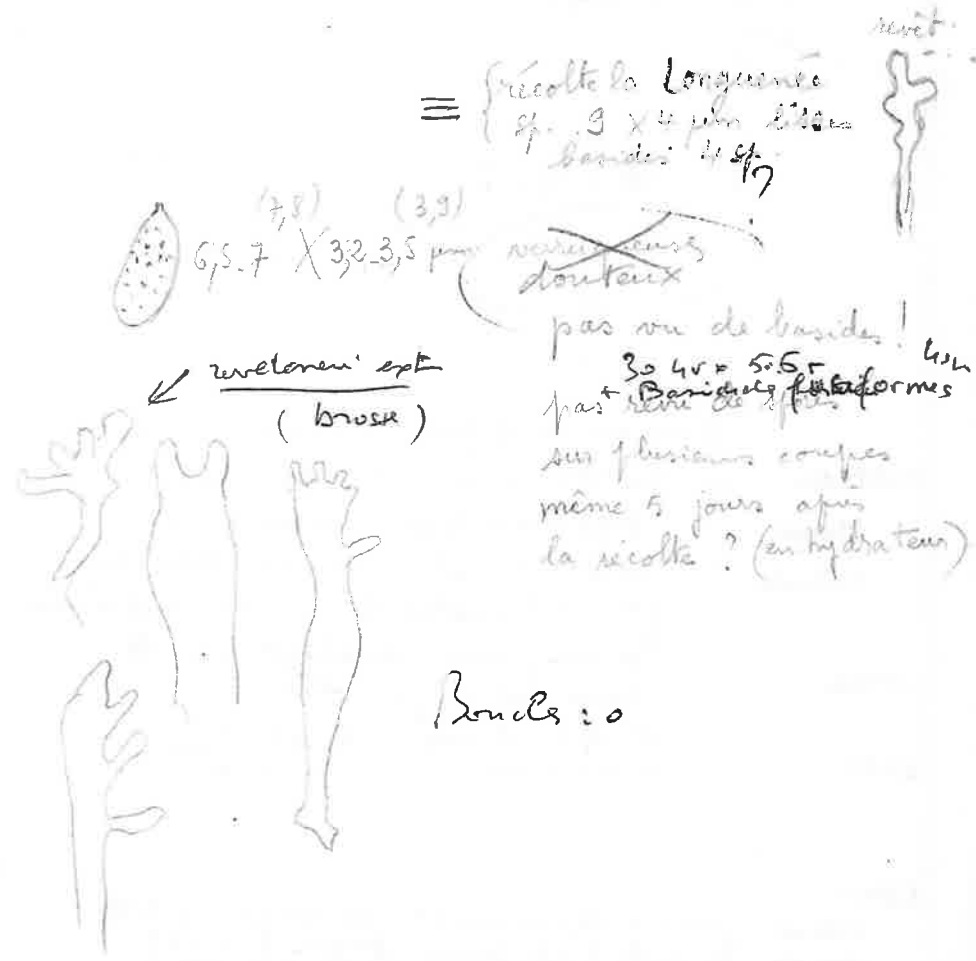 revêt.
≡ { récolte la Longuenée
sp. 9 X 4 µm lisses
basides 4 sp.
(7,8) (3,9)
6,5-7 X 3,2-3,5 µm verruqueuses
douteux
pas vu de basides !
30 45 x 5.5
+ Basidioles fusiformes
pas revu de spores
sur plusieurs coupes
même 5 jours après
la récolte ? (en hydrateur)
revêtement ext
(brosse)
Boucles : 0